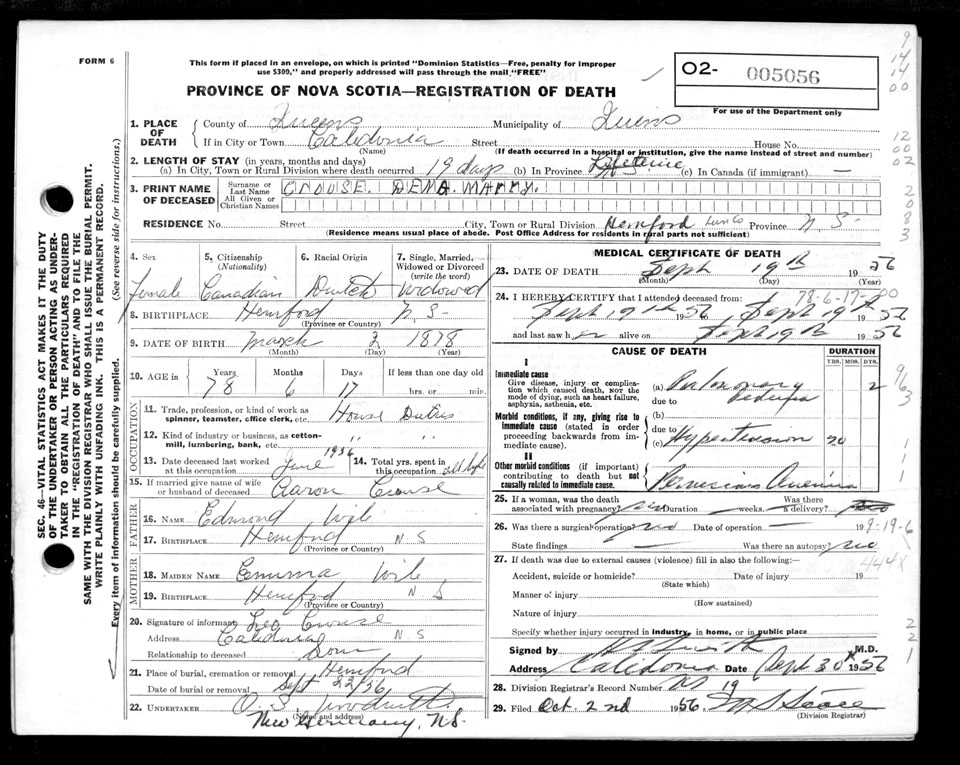 FORM 6
This form if placed in an envelope, on which is printed "Dominion Statistics—Free, penalty for improper
use $300," and properly addressed will pass through the mail "FREE"
PROVINCE OF NOVA SCOTIA—REGISTRATION OF DEATH
O2- 005056
For use of the Department only
1. PLACE OF DEATH { County of Queens Municipality of Queens
If in City or Town Caledonia Street House No.
(Name) (If death occurred in a hospital or institution, give the name instead of street and number)
2. LENGTH OF STAY (in years, months and days)
(a) In City, Town or Rural Division where death occurred 19 days (b) In Province Lifetime (c) In Canada (if immigrant) —
3. PRINT NAME OF DECEASED { Surname or Last Name CROUSE. DEMA. MARRY.
All Given or Christian Names
RESIDENCE No. Street City, Town or Rural Division Hemford Lun Co Province N. S-
(Residence means usual place of abode. Post Office Address for residents in rural parts not sufficient)
4. Sex 5. Citizenship (Nationality) 6. Racial Origin 7. Single, Married, Widowed or Divorced (write the word)
female Canadian Dutch Widowed
8. BIRTHPLACE Hemford N. S-
(Province or Country)
9. DATE OF BIRTH March 2 1878
(Month) (Day) (Year)
10. AGE in { Years Months Days If less than one day old
78 6 17 hrs. or min.
OCCUPATION
11. Trade, profession, or kind of work as spinner, teamster, office clerk, etc. House Duties
12. Kind of industry or business, as cotton-mill, lumbering, bank, etc. " "
13. Date deceased last worked at this occupation June 1956 14. Total yrs. spent in this occupation all life
15. If married give name of wife or husband of deceased Aaron Crouse
FATHER
16. NAME Edmond Wile
17. BIRTHPLACE Hemford N S
(Province or Country)
MOTHER
18. MAIDEN NAME Emma Wile
19. BIRTHPLACE Hemford N S
(Province or Country)
20. Signature of informant Leo Crouse
Address Caledonia N S
Relationship to deceased Son
21. Place of burial, cremation or removal Hemford
Date of burial or removal Sept 22/56
22. UNDERTAKER
(Name and address)
New Germany, N.S.
MEDICAL CERTIFICATE OF DEATH
23. DATE OF DEATH Sept 19th 1956
(Month) (Day) (Year)
78-6-17-00
24. I HEREBY CERTIFY that I attended deceased from:
Sept 19th 1956 Sept 19th 1956
and last saw h er alive on Sept 19th 1956
CAUSE OF DEATH DURATION
YRS. MOS. DYS.
I
Immediate cause
Give disease, injury or complication which caused death, NOT the mode of dying, such as heart failure, asphyxia, asthenia, etc.
(a) Pulmonary 2
due to oedema
Morbid conditions, if any, giving rise to immediate cause (stated in order proceeding backwards from immediate cause).
(b)
due to
(c) Hypertension 20
II
Other morbid conditions (if important) contributing to death but not causally related to immediate cause.
Pernicious Anemia
25. If a woman, was the death associated with pregnancy? no Duration — weeks. Was there a delivery?
26. Was there a surgical operation? no Date of operation — 19
State findings — Was there an autopsy? no
27. If death was due to external causes (violence) fill in also the following:—
Accident, suicide or homicide? Date of injury 19
(State which)
Manner of injury
(How sustained)
Nature of injury
Specify whether injury occurred in industry, in home, or in public place
Signed by M.D.
Address Caledonia Date Sept 30 1956
28. Division Registrar's Record Number 19
29. Filed Oct. 2nd 1956
(Division Registrar)
SEC. 46—VITAL STATISTICS ACT MAKES IT THE DUTY
OF THE UNDERTAKER OR PERSON ACTING AS UNDER-
TAKER TO OBTAIN ALL THE PARTICULARS REQUIRED
IN THE "REGISTRATION OF DEATH" AND TO FILE THE
SAME WITH THE DIVISION REGISTRAR WHO SHALL ISSUE THE BURIAL PERMIT.
WRITE PLAINLY WITH UNFADING INK. THIS IS A PERMANENT RECORD.
Every item of information should be carefully supplied. (See reverse side for instructions.)